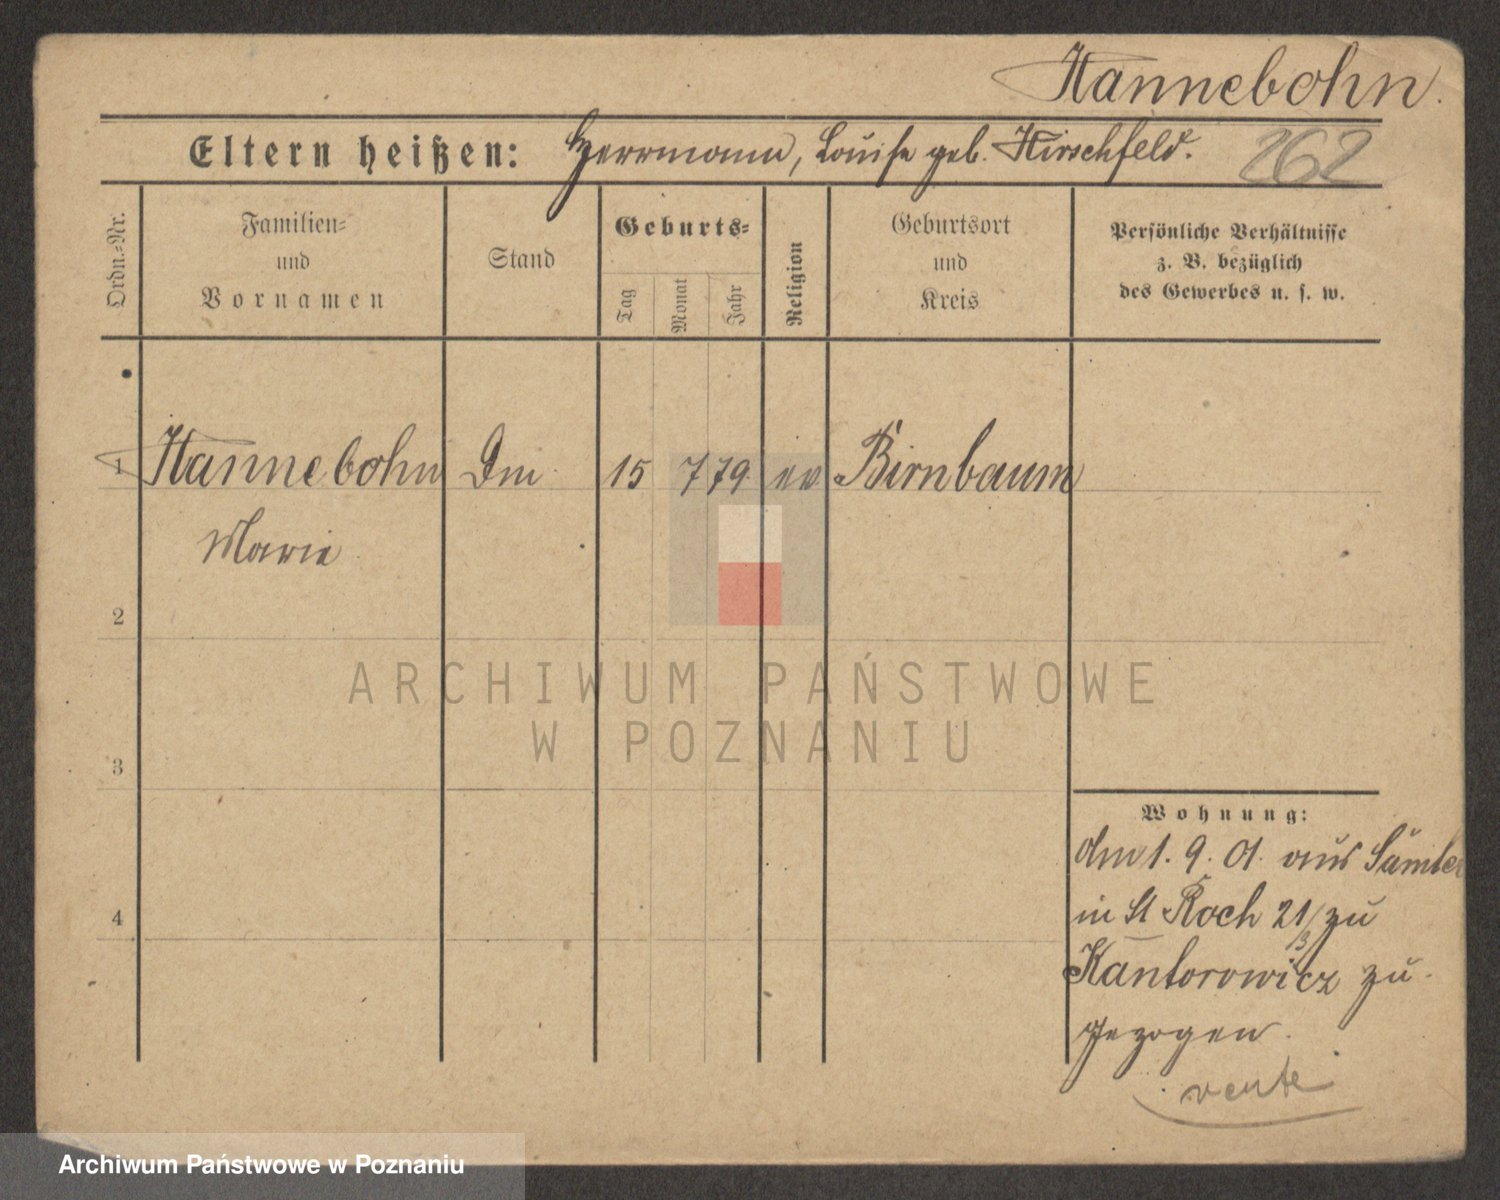 Hannebohn.
Eltern heißen: Herrmann, Louise geb. Hirschfeld. 262
Ordn.-Nr.
Familien-
und
Vornamen
Stand
Geburts-
Tag
Monat
Jahr
Religion
Geburtsort
und
Kreis
Persönliche Verhältnisse
z. B. bezüglich
des Gewerbes u. s. w.
1 Hannebohn Dm 15 7 79 ev Birnbaum
Marie
2
3
4
ARCHIWUM PAŃSTWOWE
W POZNANIU
Wohnung:
1. 9. 01. aus Samter
in St Roch 21/3 zu
Kantorowicz zu
gezogen.
vente
Archiwum Państwowe w Poznaniu